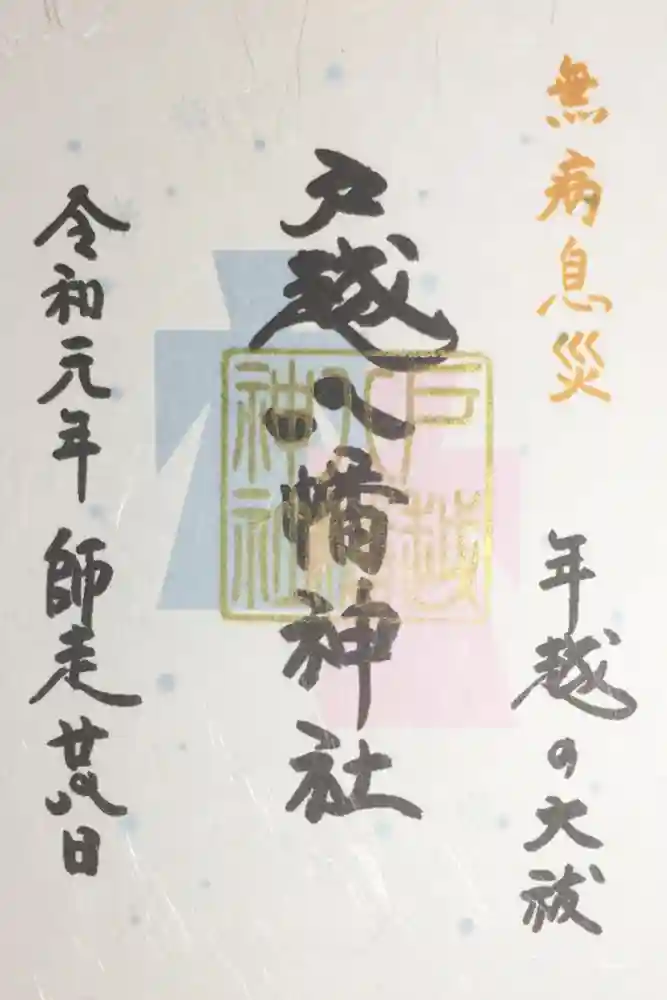 無病息災
年越の大祓
戸越八幡神社
戸越
八幡
神社
令和元年 師走 廿八日